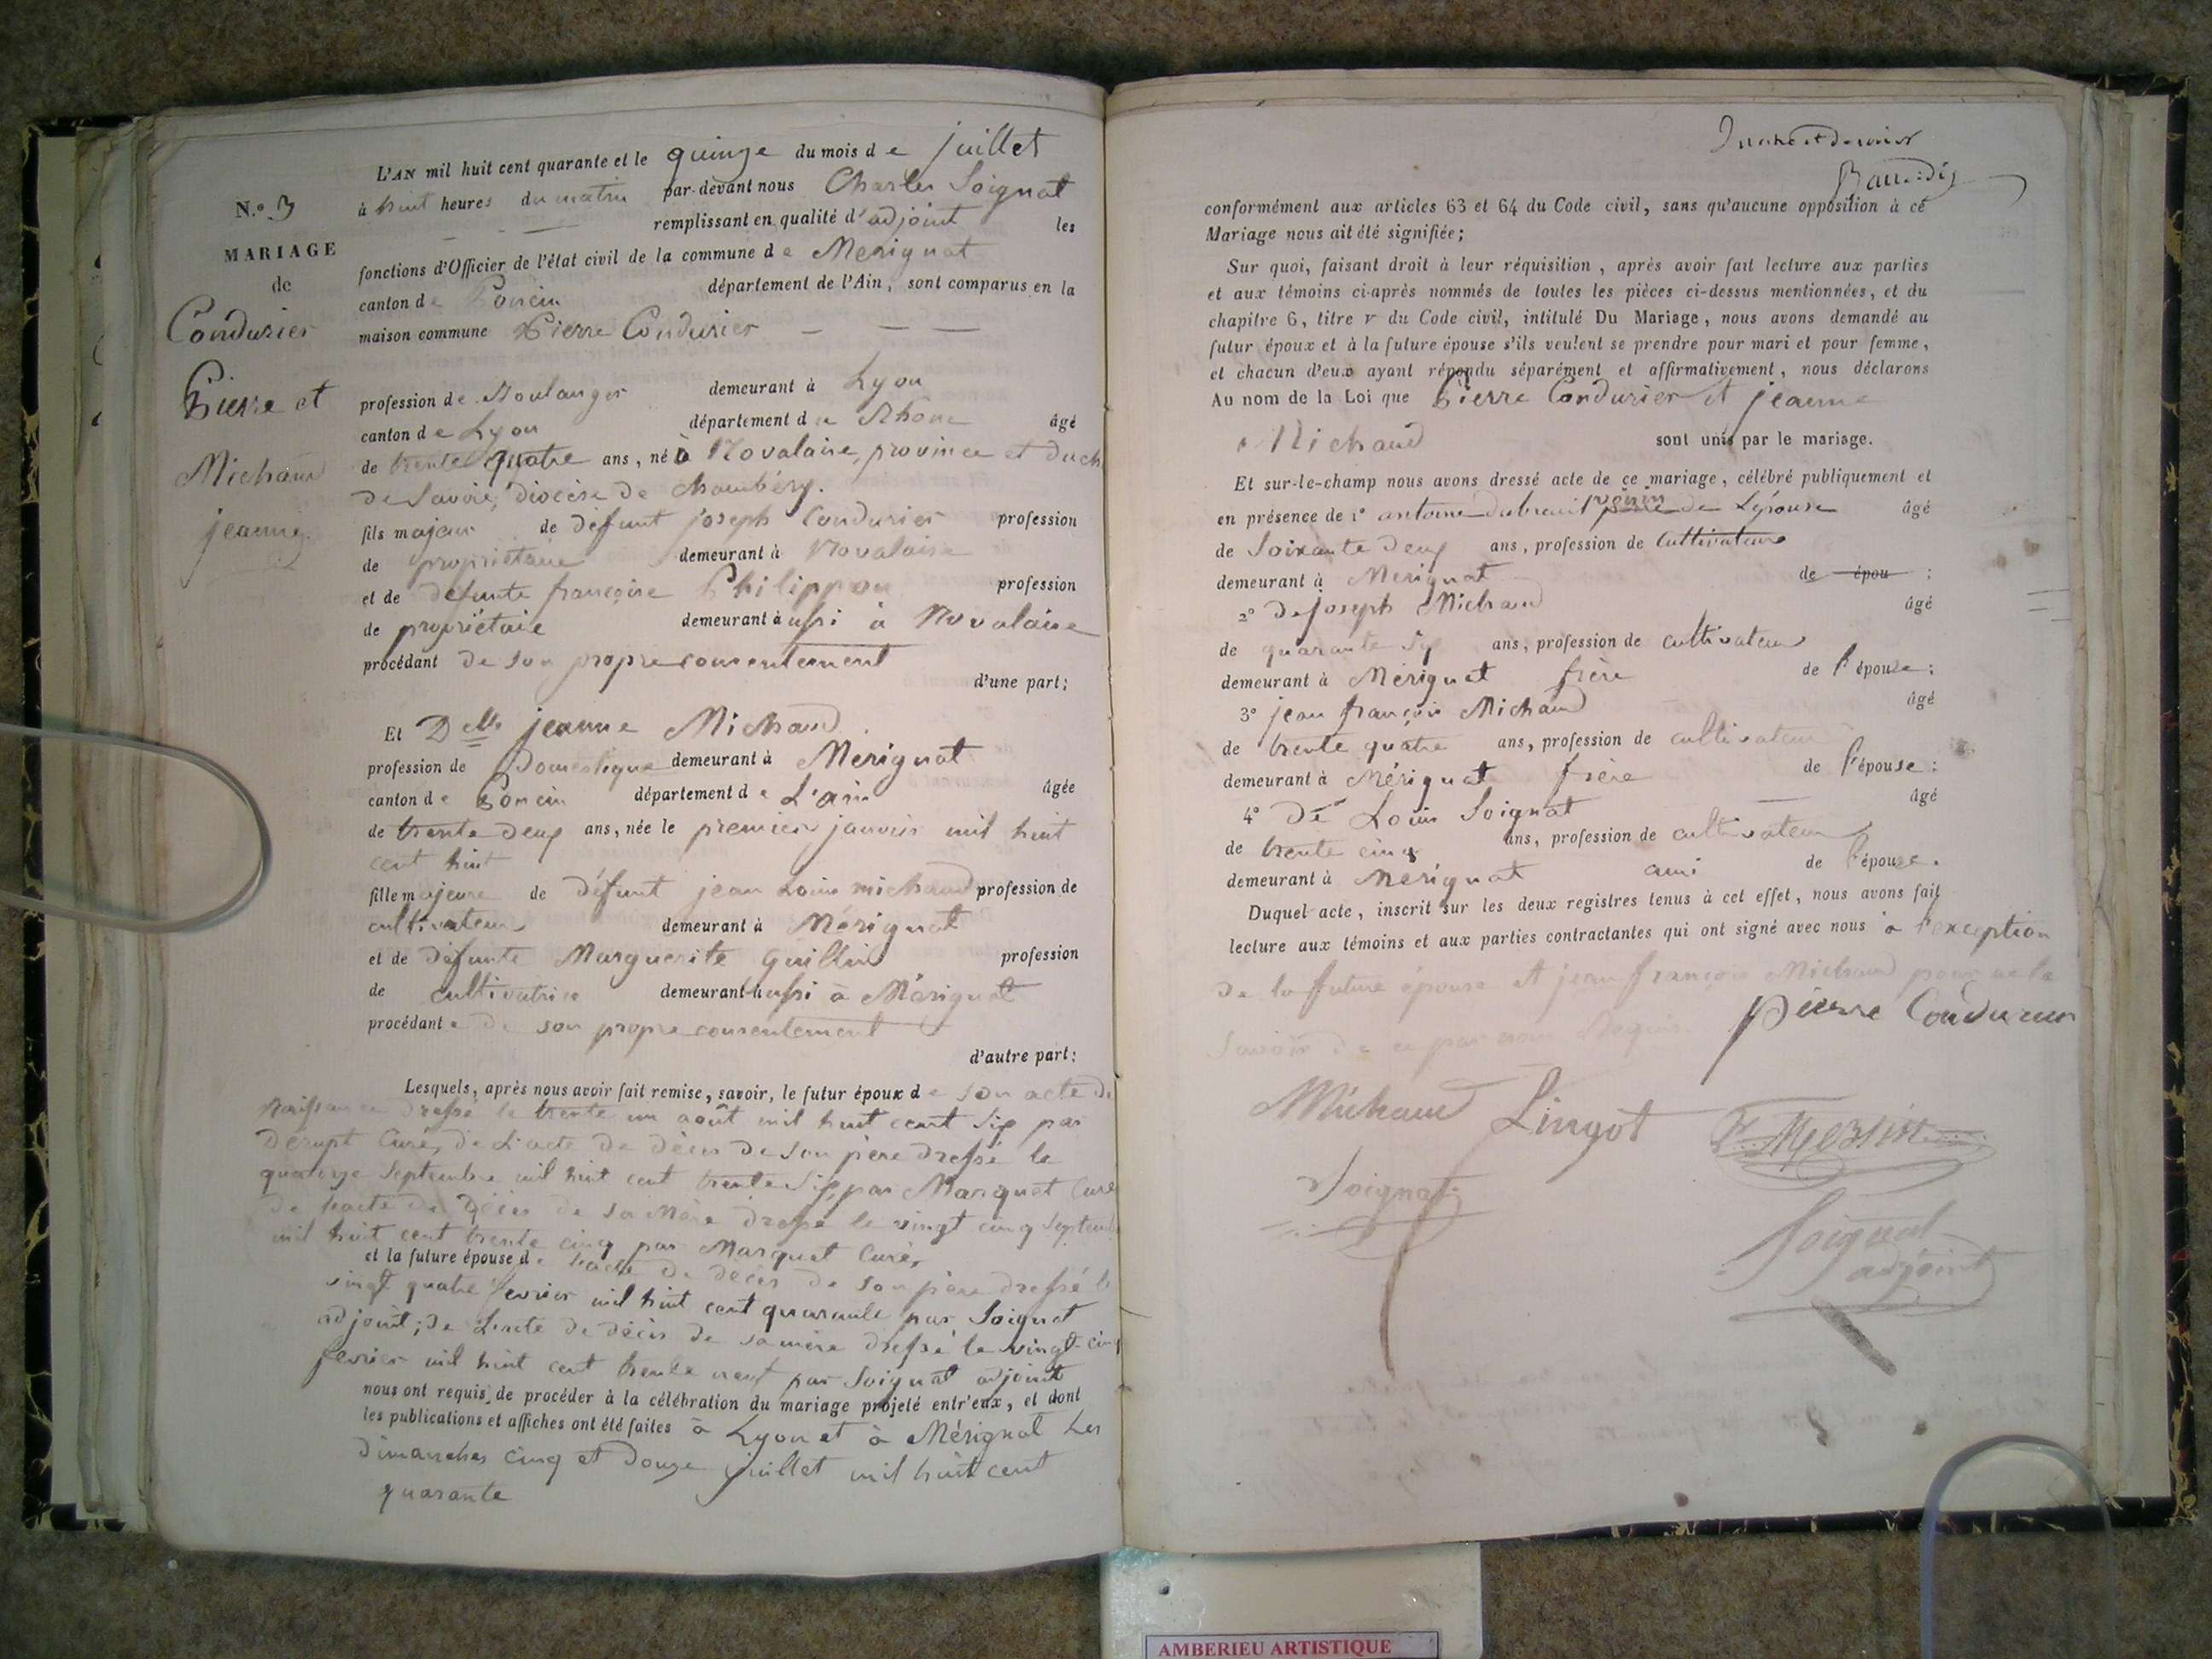 N.° 3
MARIAGE
de
Condurier
Pierre et
Michaud
jeanne
L'AN mil huit cent quarante et le quinze du mois de juillet
à huit heures du matin par-devant nous Charles Soignat
remplissant en qualité d'adjoint les
fonctions d'Officier de l'état civil de la commune de Merignat
canton de Poncin département de l'Ain, sont comparus en la
maison commune Pierre Condurier
profession de Boulanger demeurant à Lyon
canton de Lyon département du Rhône âgé
de trente quatre ans, né à Novalaise, province et duch
de Savoie, diocèse de chambéry.
fils majeur de défunt joseph Condurier profession
de propriétaire demeurant à Novalaise
et de defunte françoise Philippon profession
de propriétaire demeurant à ussi à Novalaise
procédant de son propre consentement
d'une part;
Et Delle jeanne Michaud
profession de Domestique demeurant à Merignat
canton de Poncin département de L'ain âgée
de trente deux ans, née le premier janvier mil huit
cent huit
fille majeure de défunt jean Louis michaud profession de
cultivateur demeurant à Mérignat
et de défunte Marguerite Guillin profession
de cultivatrice demeurant aussi à Mérignat
procédante de son propre consentement
d'autre part;
Lesquels, après nous avoir fait remise, savoir, le futur époux de son acte de
naissance dressé le trente un août mil huit cent six par
Curé, de L'acte de décès de son père dressé le
quatorze Septembre mil huit cent trente six, par Marquet Curé
de L'acte de décès de sa Mère dressé le vingt cinq Septemb
mil huit cent trente cinq par Marquet Curé,
et la future épouse de L'acte de décès de son père dressé le
vingt quatre fevrier mil huit cent quarante par Soignat
adjoint; de L'acte de décès de sa mère dressé le vingt-cinq
fevrier mil huit cent trente neuf par Soignat adjoint
nous ont requis de procéder à la célébration du mariage projeté entr'eux, et dont
les publications et affiches ont été faites à Lyon et à Mérignat Les
dimanches cinq et douze juillet mil huit cent
quarante
conformément aux articles 63 et 64 du Code civil, sans qu'aucune opposition à ce
Mariage nous ait été signifiée;
Sur quoi, faisant droit à leur réquisition, après avoir fait lecture aux parties
et aux témoins ci-après nommés de toutes les pièces ci-dessus mentionnées, et du
chapitre 6, titre v du Code civil, intitulé Du Mariage, nous avons demandé au
futur époux et à la future épouse s'ils veulent se prendre pour mari et pour femme,
et chacun d'eux ayant répondu séparément et affirmativement, nous déclarons
Au nom de la Loi que Pierre Condurier et jeanne
Michaud sont unis par le mariage.
Et sur-le-champ nous avons dressé acte de ce mariage, célébré publiquement et
en présence de 1° antoine de L'épouse âgé
de Soixante deux ans, profession de Cultivateur
demeurant à Merignat de épou ;
2° De joseph Michaud âgé
de quarante six ans, profession de cultivateur
demeurant à Mérignat frère de l'épouse;
3° jean françois Michaud âgé
de trente quatre ans, profession de cultivateur
demeurant à Mérignat frère de l'épouse;
4° De Louis Soignat âgé
de trente cinq ans, profession de cultivateur
demeurant à Mérignat ami de l'épouse.
Duquel acte, inscrit sur les deux registres tenus à cet effet, nous avons fait
lecture aux témoins et aux parties contractantes qui ont signé avec nous à l'exception
de la future épouse et jean françois Michaud pour ne le
Savoir de ce par nous
Pierre Condurier
Michaud Lingot
Soignat
Soignat
adjoint
AMBERIEU ARTISTIQUE